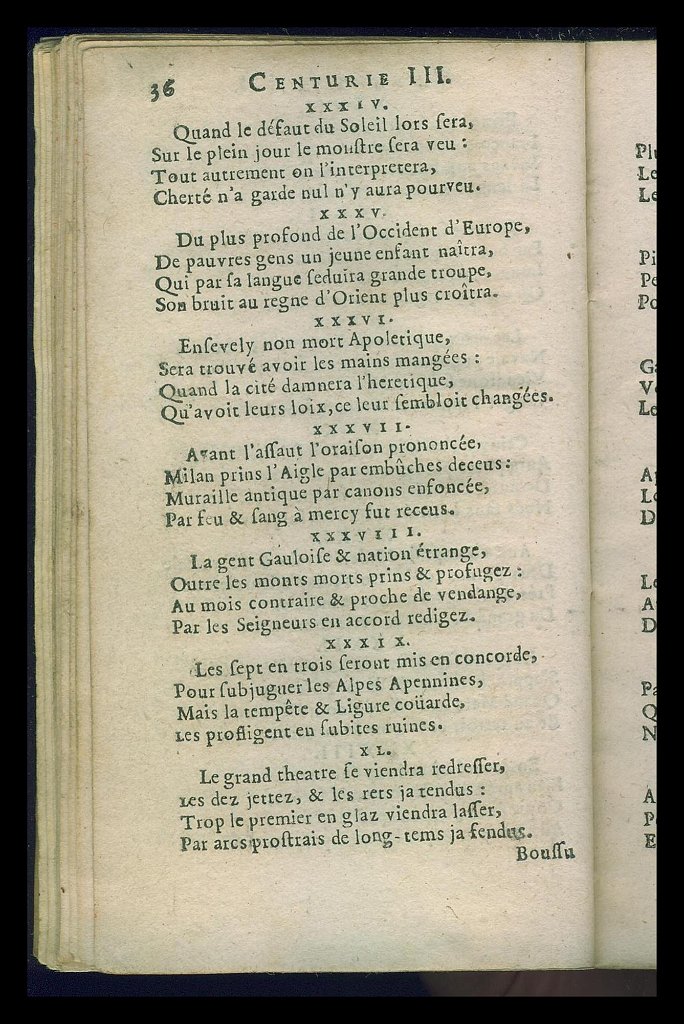 36 CENTURIE III.
XXXIV.
Quand le défaut du Soleil lors ſera,
Sur le plein jour le monſtre ſera veu :
Tout autrement on l'interpretera,
Cherté n'a garde nul n'y aura pourveu.
XXXV.
Du plus profond de l'Occident d'Europe,
De pauvres gens un jeune enfant naîtra,
Qui par ſa langue ſeduira grande troupe,
Son bruit au regne d'Orient plus croîtra.
XXXVI.
Enſevely non mort Apoletique,
Sera trouvé avoir les mains mangées :
Quand la cité damnera l'heretique,
Qu'avoit leurs loix, ce leur ſembloit changées.
XXXVII.
Avant l'aſſaut l'oraiſon prononcée,
Milan prins l'Aigle par embûches deceus :
Muraille antique par canons enfoncée,
Par feu & ſang à mercy fut receus.
XXXVIII.
La gent Gauloiſe & nation étrange,
Outre les monts morts prins & profugez :
Au mois contraire & proche de vendange,
Par les Seigneurs en accord redigez.
XXXIX.
Les ſept en trois ſeront mis en concorde,
Pour ſubjuguer les Alpes Apennines,
Mais la tempête & Ligure coüarde,
Les profligent en ſubites ruines.
XL.
Le grand theatre ſe viendra redreſſer,
Les dez jettez, & les rets ja tendus :
Trop le premier en glaz viendra laſſer,
Par arcs proſtrais de long-tems ja fendus.
Bouſſu